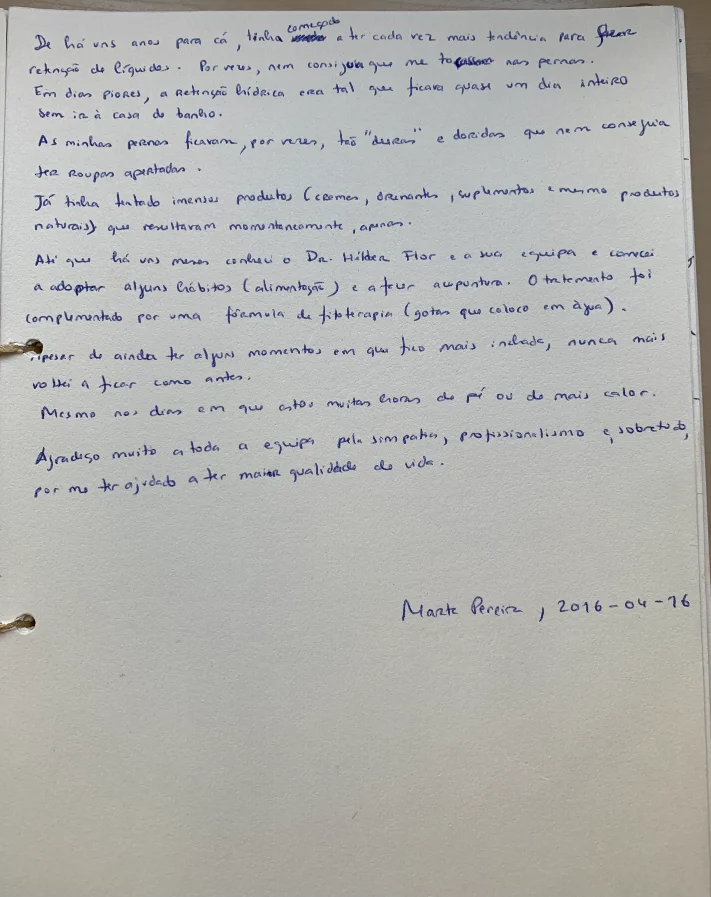 De há uns anos para cá, tinha começado a ter cada vez mais tendência para fazer
retenção de líquidos. Por vezes, nem conseguia que me tocassem nas pernas.
Em dias piores, a retenção hídrica era tal que ficava quase um dia inteiro
sem ir à casa de banho.
As minhas pernas ficavam, por vezes, tão "duras" e doridas que nem conseguia
ter roupas apertadas.
Já tinha tentado imensos produtos (cremes, drenantes, suplementos e mesmo produtos
naturais) que resultaram momentaneamente, apenas.
Até que há uns meses conheci o Dr. Hélder Flor e a sua equipa e comecei
a adoptar alguns hábitos (alimentação) e a fazer acupuntura. O tratamento foi
complementado por uma fórmula de fitoterapia (gotas que coloco em água).
Apesar de ainda ter alguns momentos em que fico mais inchada, nunca mais
voltei a ficar como antes.
Mesmo nos dias em que estou muitas horas de pé ou de mais calor.
Agradeço muito a toda a equipa pela simpatia, profissionalismo e, sobretudo,
por me ter ajudado a ter maior qualidade de vida.
Marta Pereira, 2016-04-16